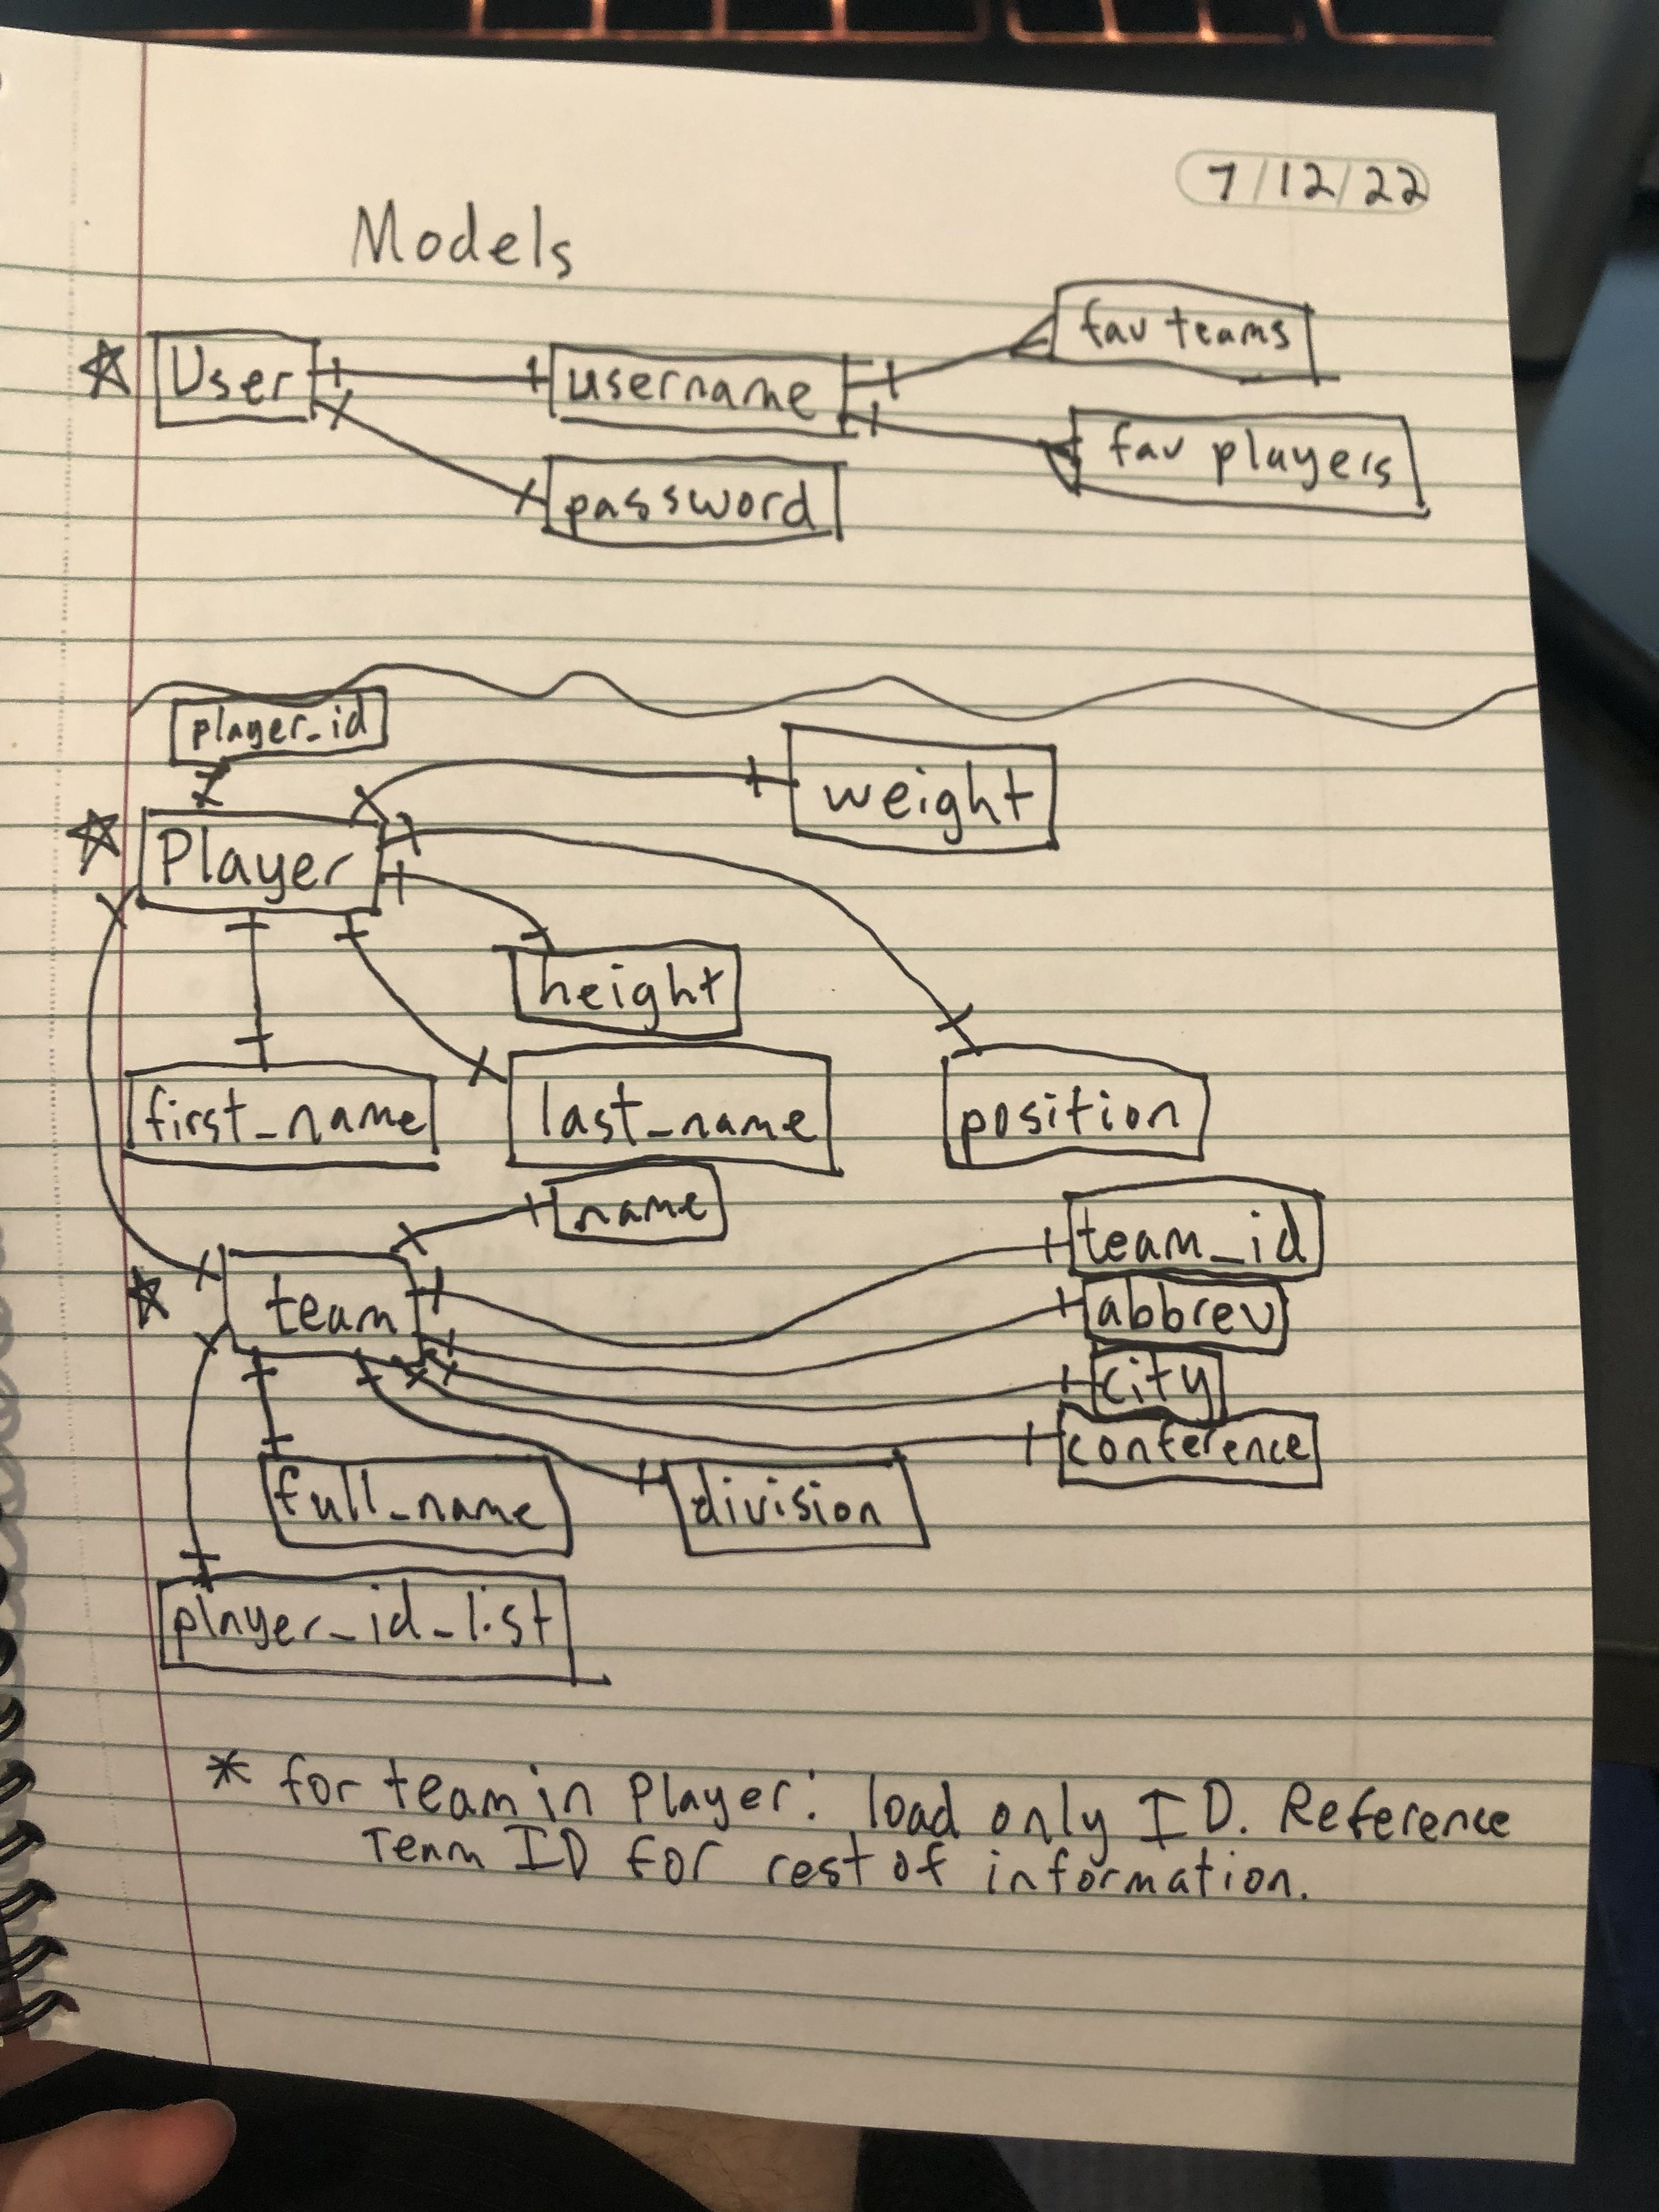 7/12/22
Models
User
username
fav teams
fav players
password
player_id
weight
Player
height
first_name
last_name
position
name
team_id
team
abbrev
city
conference
full_name
division
player_id_list
* for team in Player: load only ID. Reference
Team ID for rest of information.